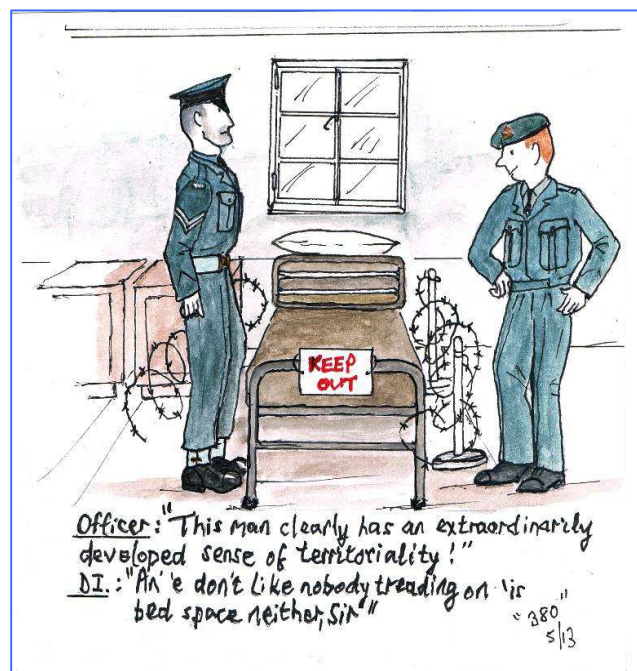 KEEP
OUT
Officer: "This man clearly has an extraordinarily
developed sense of territoriality!"
DI.: "An' 'e don't like nobody treading on 'is
bed space neither, Sir"
"380"
5/13